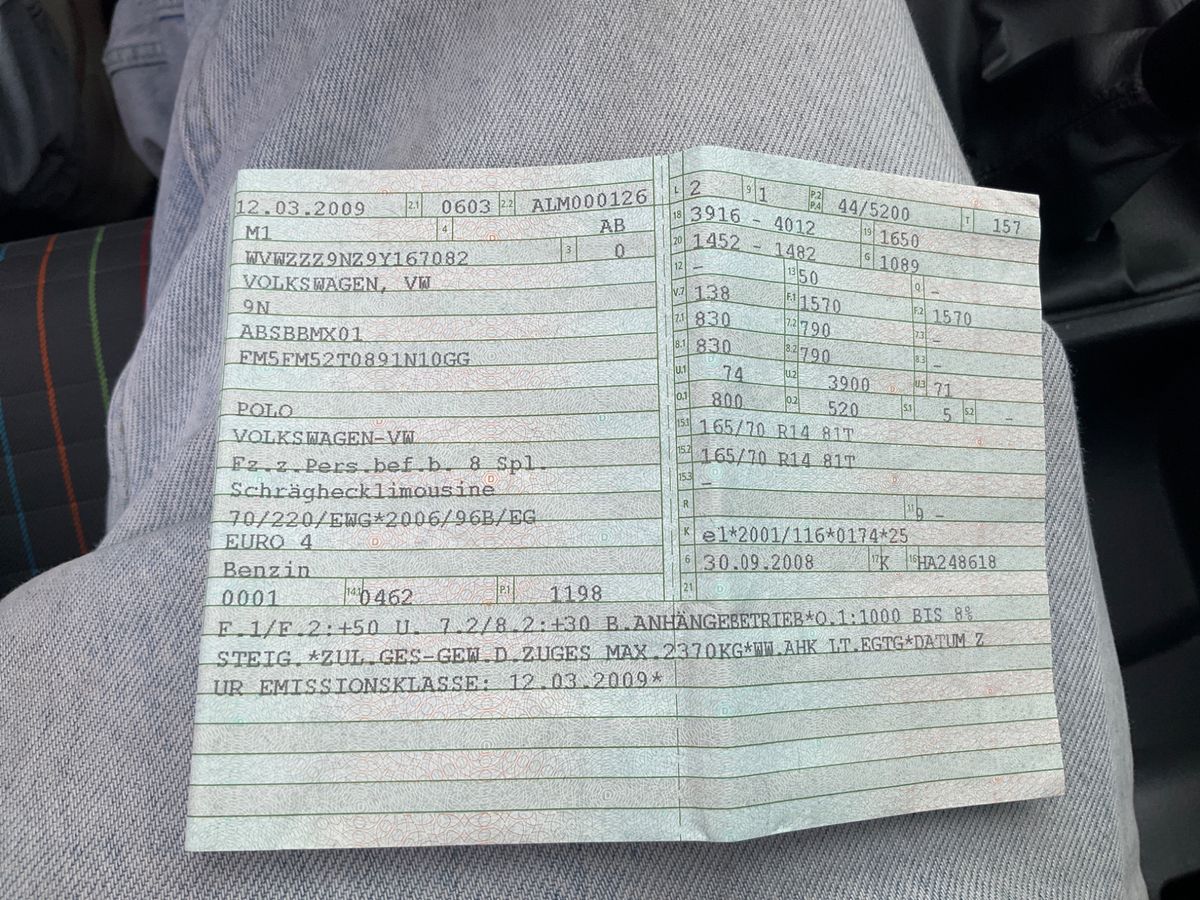 12.03.2009 2.1 0603 2.2 ALM000126
M1 4 AB
WVWZZZ9NZ9Y167082 3 0
VOLKSWAGEN, VW
9N
ABSBBMX01
FM5FM52T0891N10GG
POLO
VOLKSWAGEN-VW
Fz.z.Pers.bef.b. 8 Spl.
Schräghecklimousine
70/220/EWG*2006/96B/EG
EURO 4
Benzin
0001 14.1 0462 P.1 1198
L 2 9 1 P.2 P.4 44/5200 T 157
18 3916 - 4012 19 1650
20 1452 - 1482 G 1089
12 - 13 50 Q -
V.7 138 F.1 1570 F.2 1570
7.1 830 7.2 790 7.3 -
8.1 830 8.2 790 8.3 -
U.1 74 U.2 3900 U.3 71
O.1 800 O.2 520 S.1 5 S.2 -
15.1 165/70 R14 81T
15.2 165/70 R14 81T
15.3 -
R 11 9 -
K e1*2001/116*0174*25
6 30.09.2008 17 K 16 HA248618
21
F.1/F.2:+50 U. 7.2/8.2:+30 B.ANHÄNGEBETRIEB*O.1:1000 BIS 8%
STEIG.*ZUL.GES-GEW.D.ZUGES MAX.2370KG*WW.AHK LT.EGTG*DATUM Z
UR EMISSIONSKLASSE: 12.03.2009*